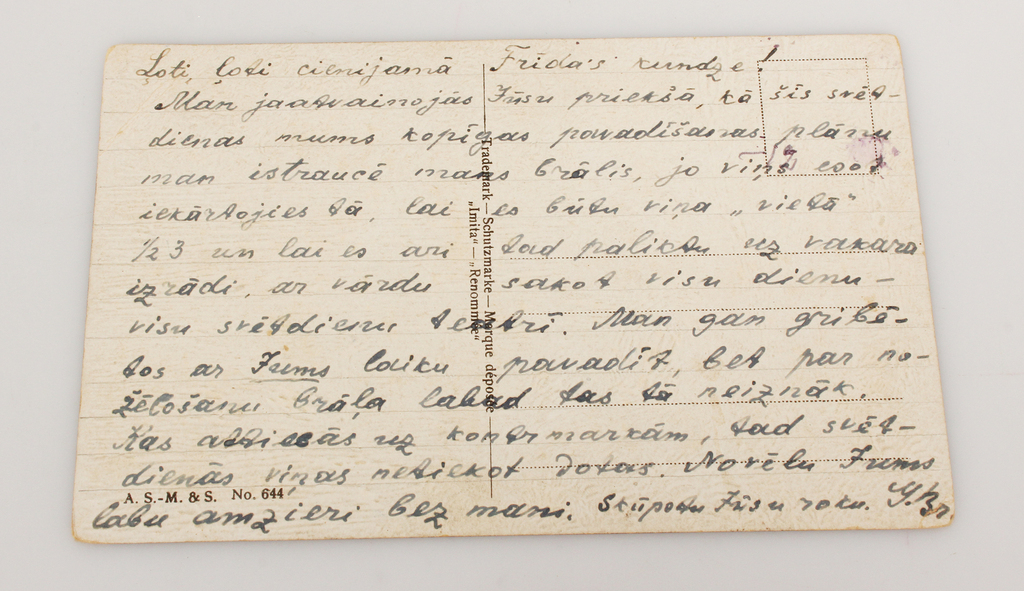 Ļoti, ļoti cienijamā Frīda's kundze!
Man jaatvainojās Jūsu priekšā, kā šīs svēt-
dienas mums kopīgas pavadīšanas plānu
man istraucē mans brālis, jo viņš esot
iekārtojies tā, lai es būtu viņa „vietā"
1/2 3 un lai es ari tad paliktu uz vakara
izrādi, ar vārdu sakot visu dienu –
visu svētdienu teātrī. Man gan gribē-
tos ar Jums laiku pavadīt, bet par no-
žēlošanu brāļa labad tas tā neiznāk.
Kas attiecās uz kontrmarkām, tad svēt-
dienās viņas netiekot dotas. Novēlu Jums
labu amzieri bez mani. Skūpstu Jūsu roku.
Trademark — Schutzmarke — Marque déposée
„Imita" — „Renommée"
A. S.-M. & S. No. 644